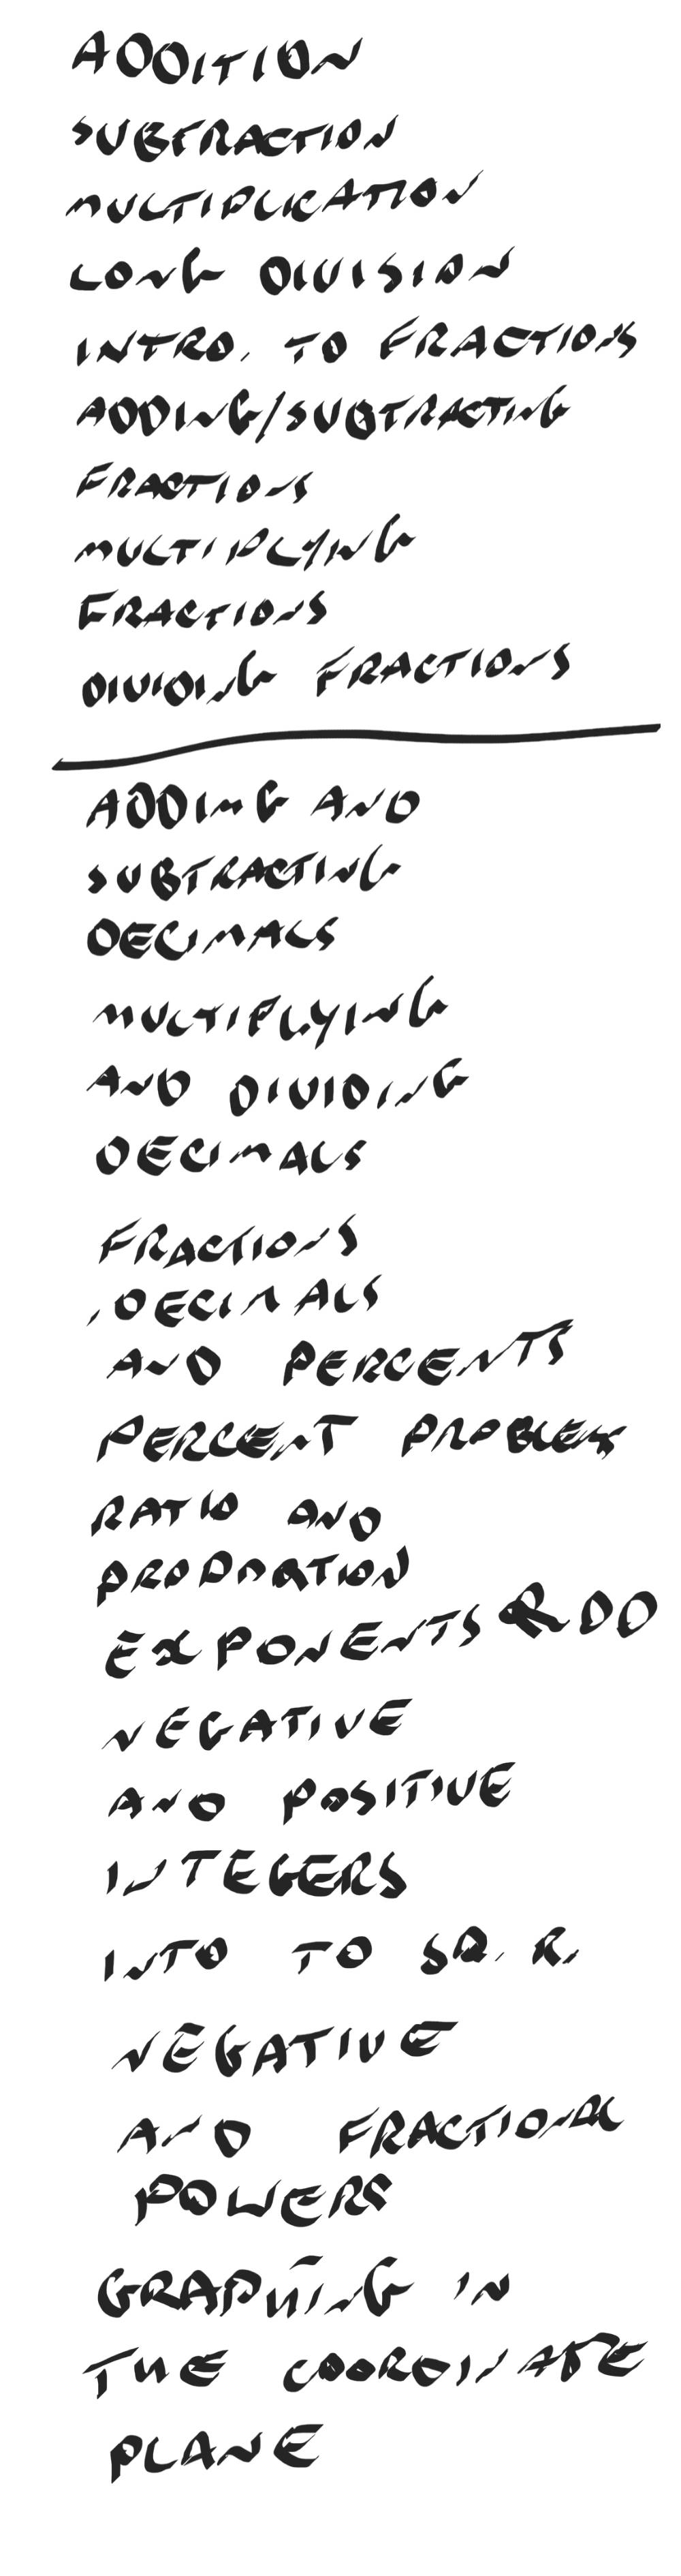 ADDITION
SUBTRACTION
MULTIPLICATION
LONG DIVISION
INTRO. TO FRACTIONS
ADDING/SUBTRACTING
FRACTIONS
MULTIPLYING
FRACTIONS
DIVIDING FRACTIONS
ADDING AND
SUBTRACTING
DECIMALS
MULTIPLYING
AND DIVIDING
DECIMALS
FRACTIONS
, DECIMALS
AND PERCENTS
PERCENT PROBLEMS
RATIO AND
PROPORTION
EXPONENTS
NEGATIVE
AND POSITIVE
INTEGERS
INTO TO SQ. R.
NEGATIVE
AND FRACTIONAL
POWERS
GRAPHING IN
THE COORDINATE
PLANE